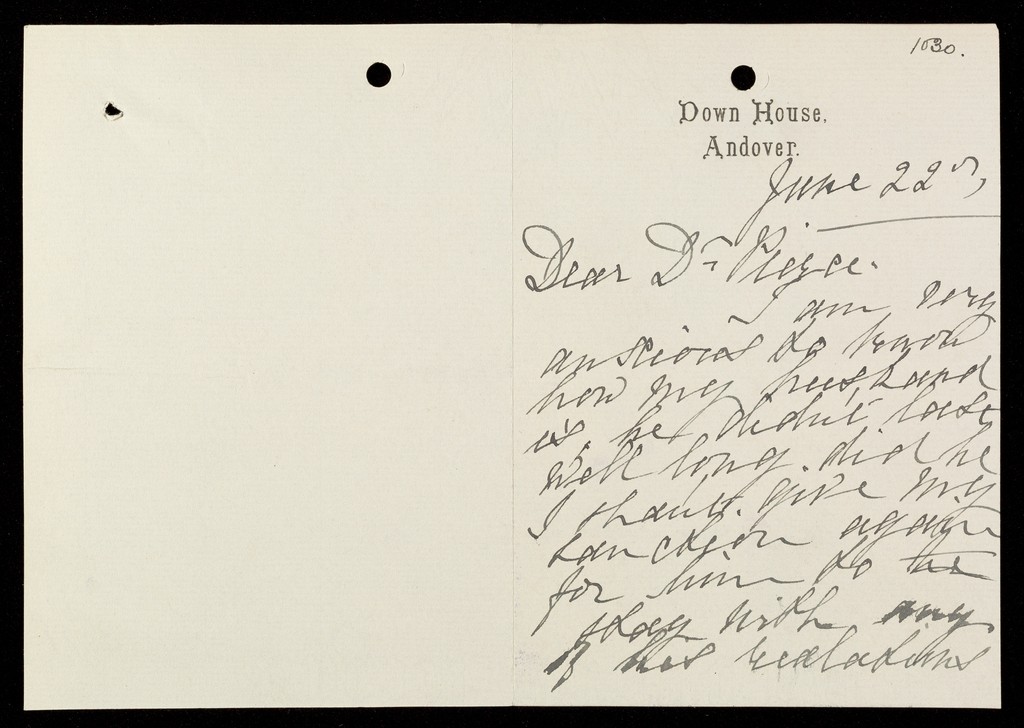 1030.
Down House,
Andover.
June 22nd,
Dear Dr Pierce.
I am very
anxious to know
how my husband
is. he didn't last
well long. did he
I shan't. give my
sanction again
for him to
stay with any
of his realations